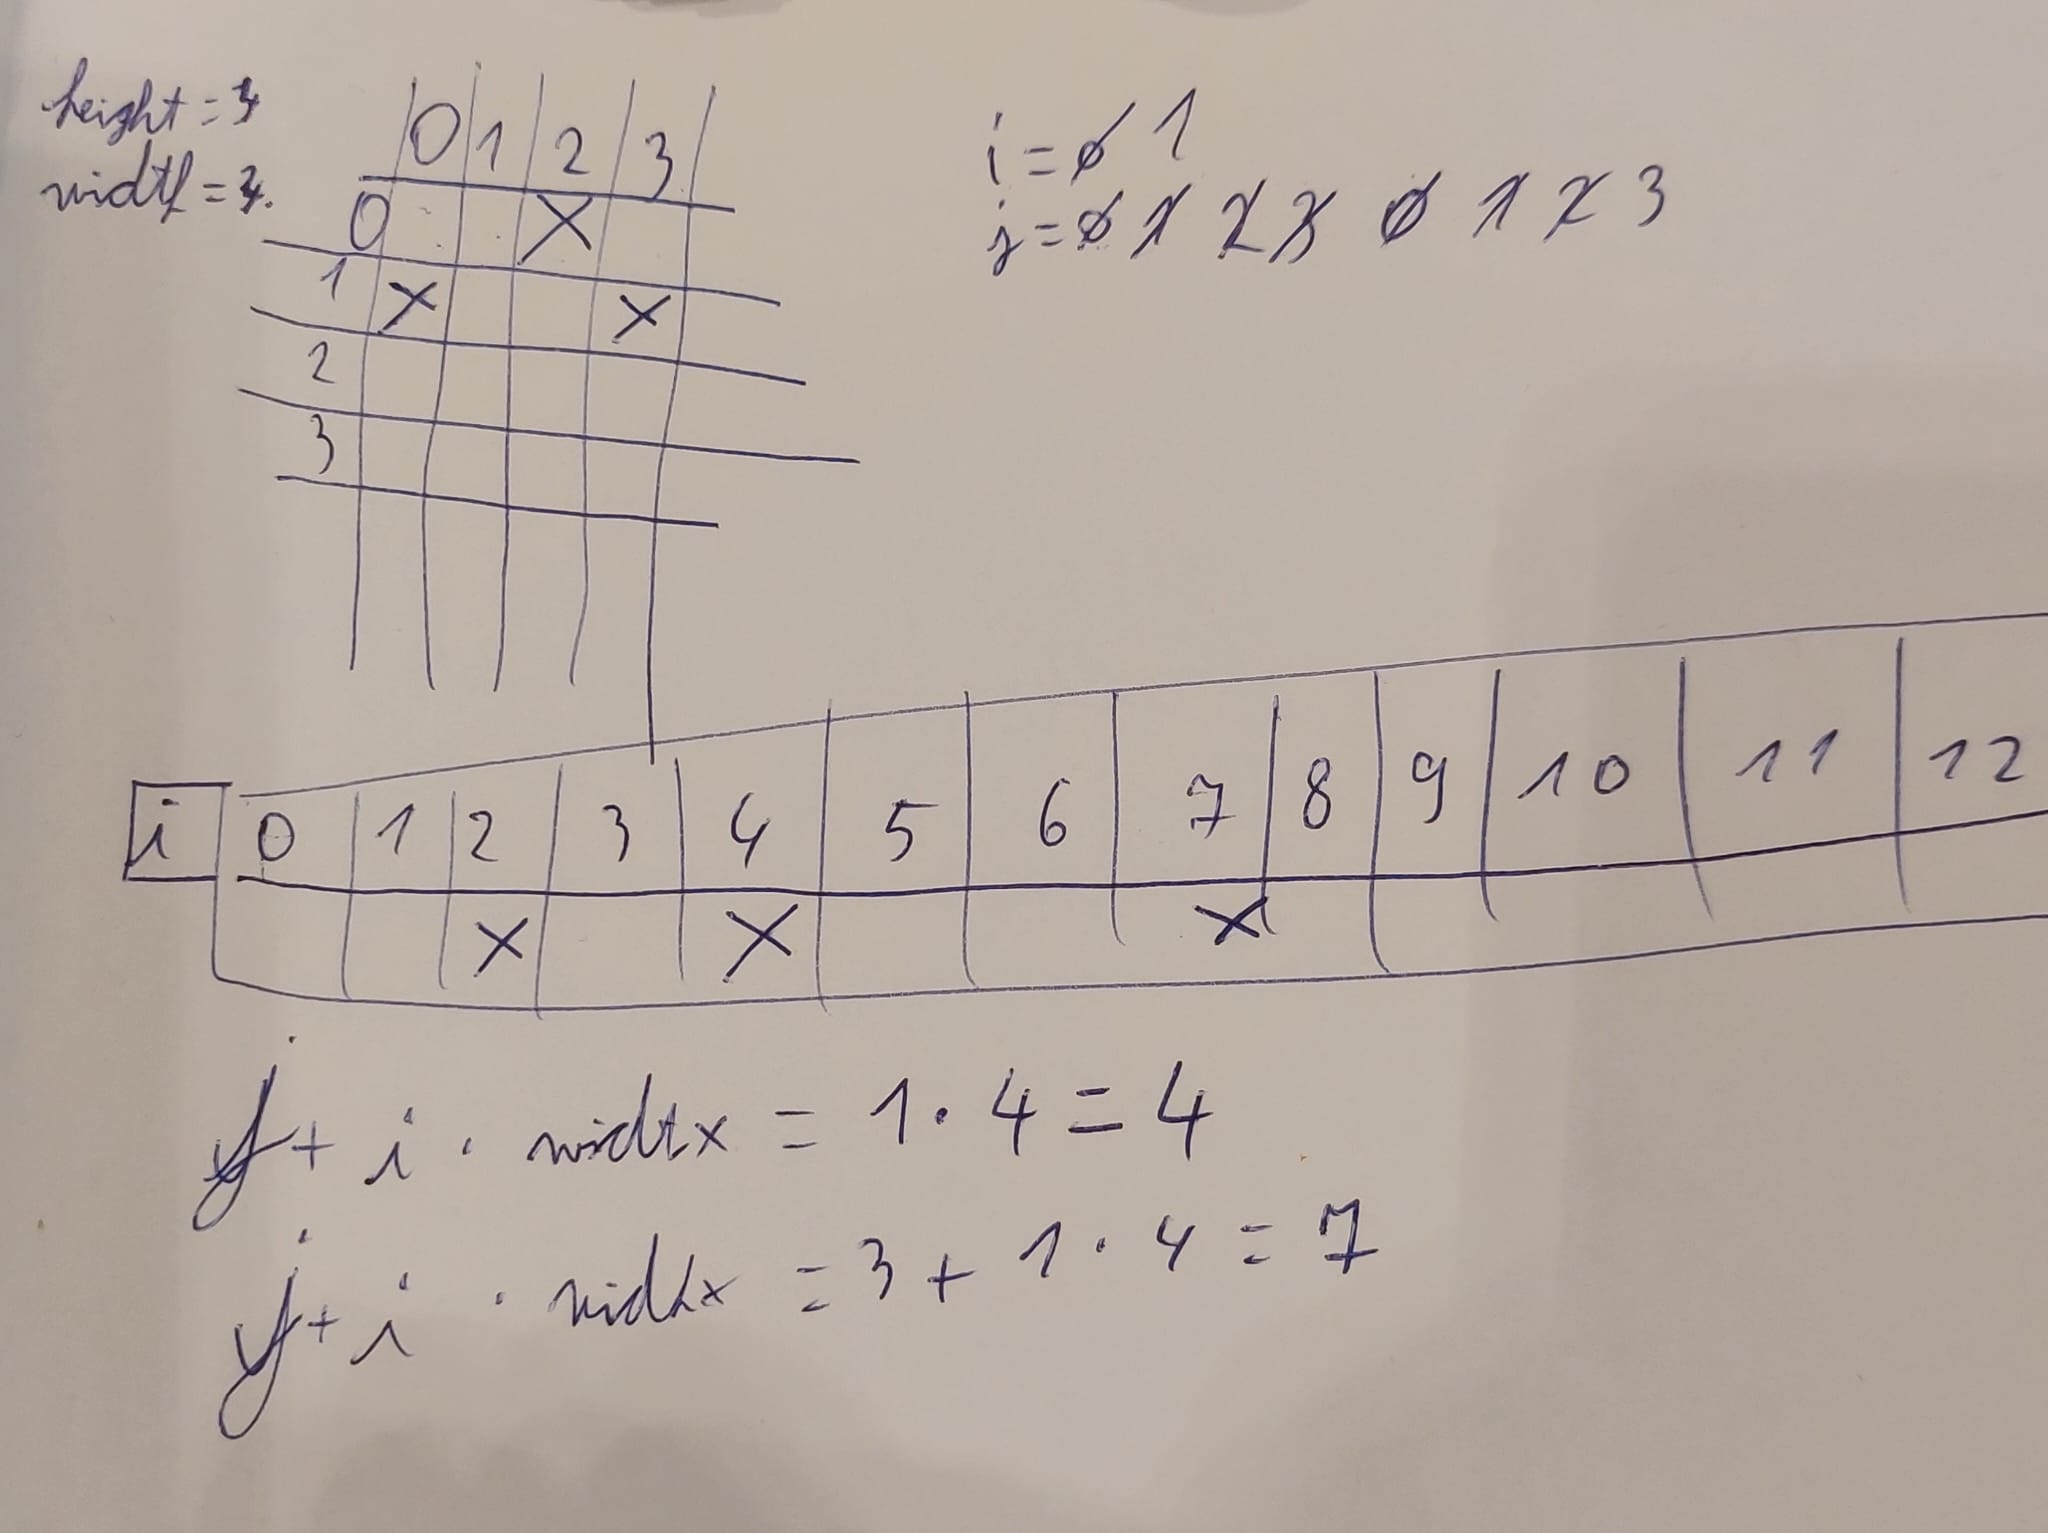 height = 4
width = 4.
0 1 2 3
0 X
1 X X
2
3
i = 0 1
j = 0 1 2 3 0 1 2 3
i 0 1 2 3 4 5 6 7 8 9 10 11 12
X X X
j + i · widtx = 1 · 4 = 4
j + i · widtx = 3 + 1 · 4 = 7